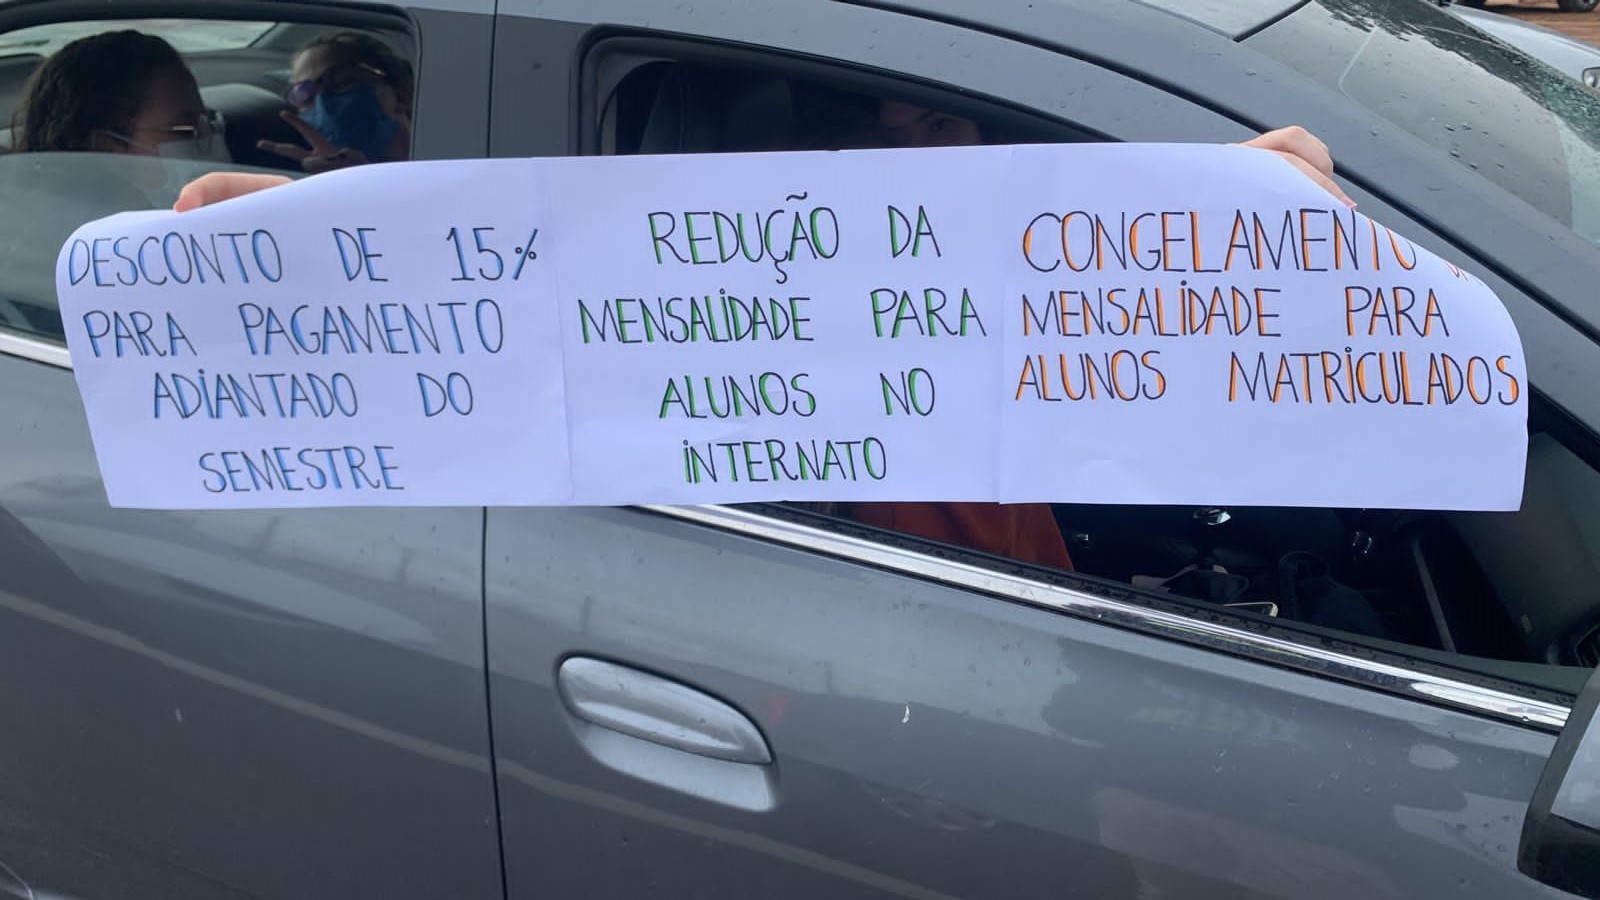 DESCONTO DE 15%
PARA PAGAMENTO
ADIANTADO DO
SEMESTRE
REDUÇÃO DA
MENSALIDADE PARA
ALUNOS NO
INTERNATO
CONGELAMENTO
MENSALIDADE PARA
ALUNOS MATRICULADOS